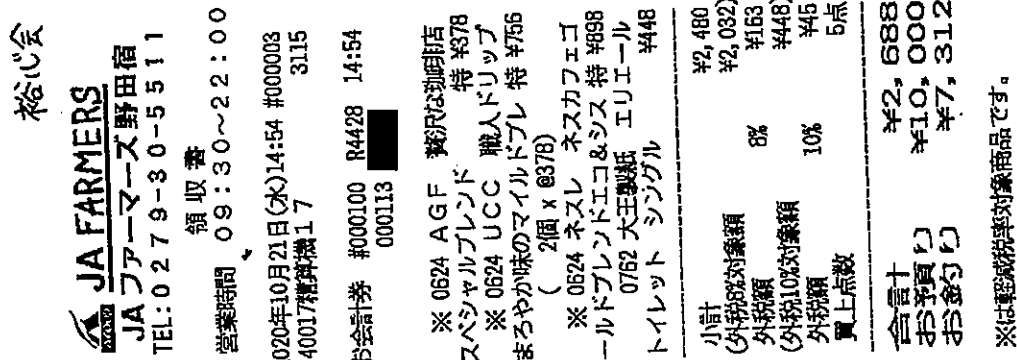 裕心会
JA FARMERS
JAファーマーズ野田宿
TEL:0279-30-5511
領収書
営業時間 09:30~22:00
020年10月21日(水)14:54 #000003
40017精算機17 3115
お会計券 #000100 R4428 14:54
000113
※ 0624 AGF 贅沢な珈琲店
スペシャルブレンド 特 ¥378
※ 0624 UCC 職人ドリップ
まろやか味のマイルドブレ 特 ¥756
( 2個 x @378)
※ 0624 ネスレ ネスカフェゴ
ールドブレンドエコ&シス 特 ¥898
0762 大王製紙 エリエール
トイレット シングル ¥448
小計 ¥2,480
(外税8%対象額 ¥2,032)
外税額 8% ¥163
(外税10%対象額 ¥448)
外税額 10% ¥45
買上点数 5点
合計 ¥2,688
お預り ¥10,000
お釣り ¥7,312
※は軽減税率対象商品です。